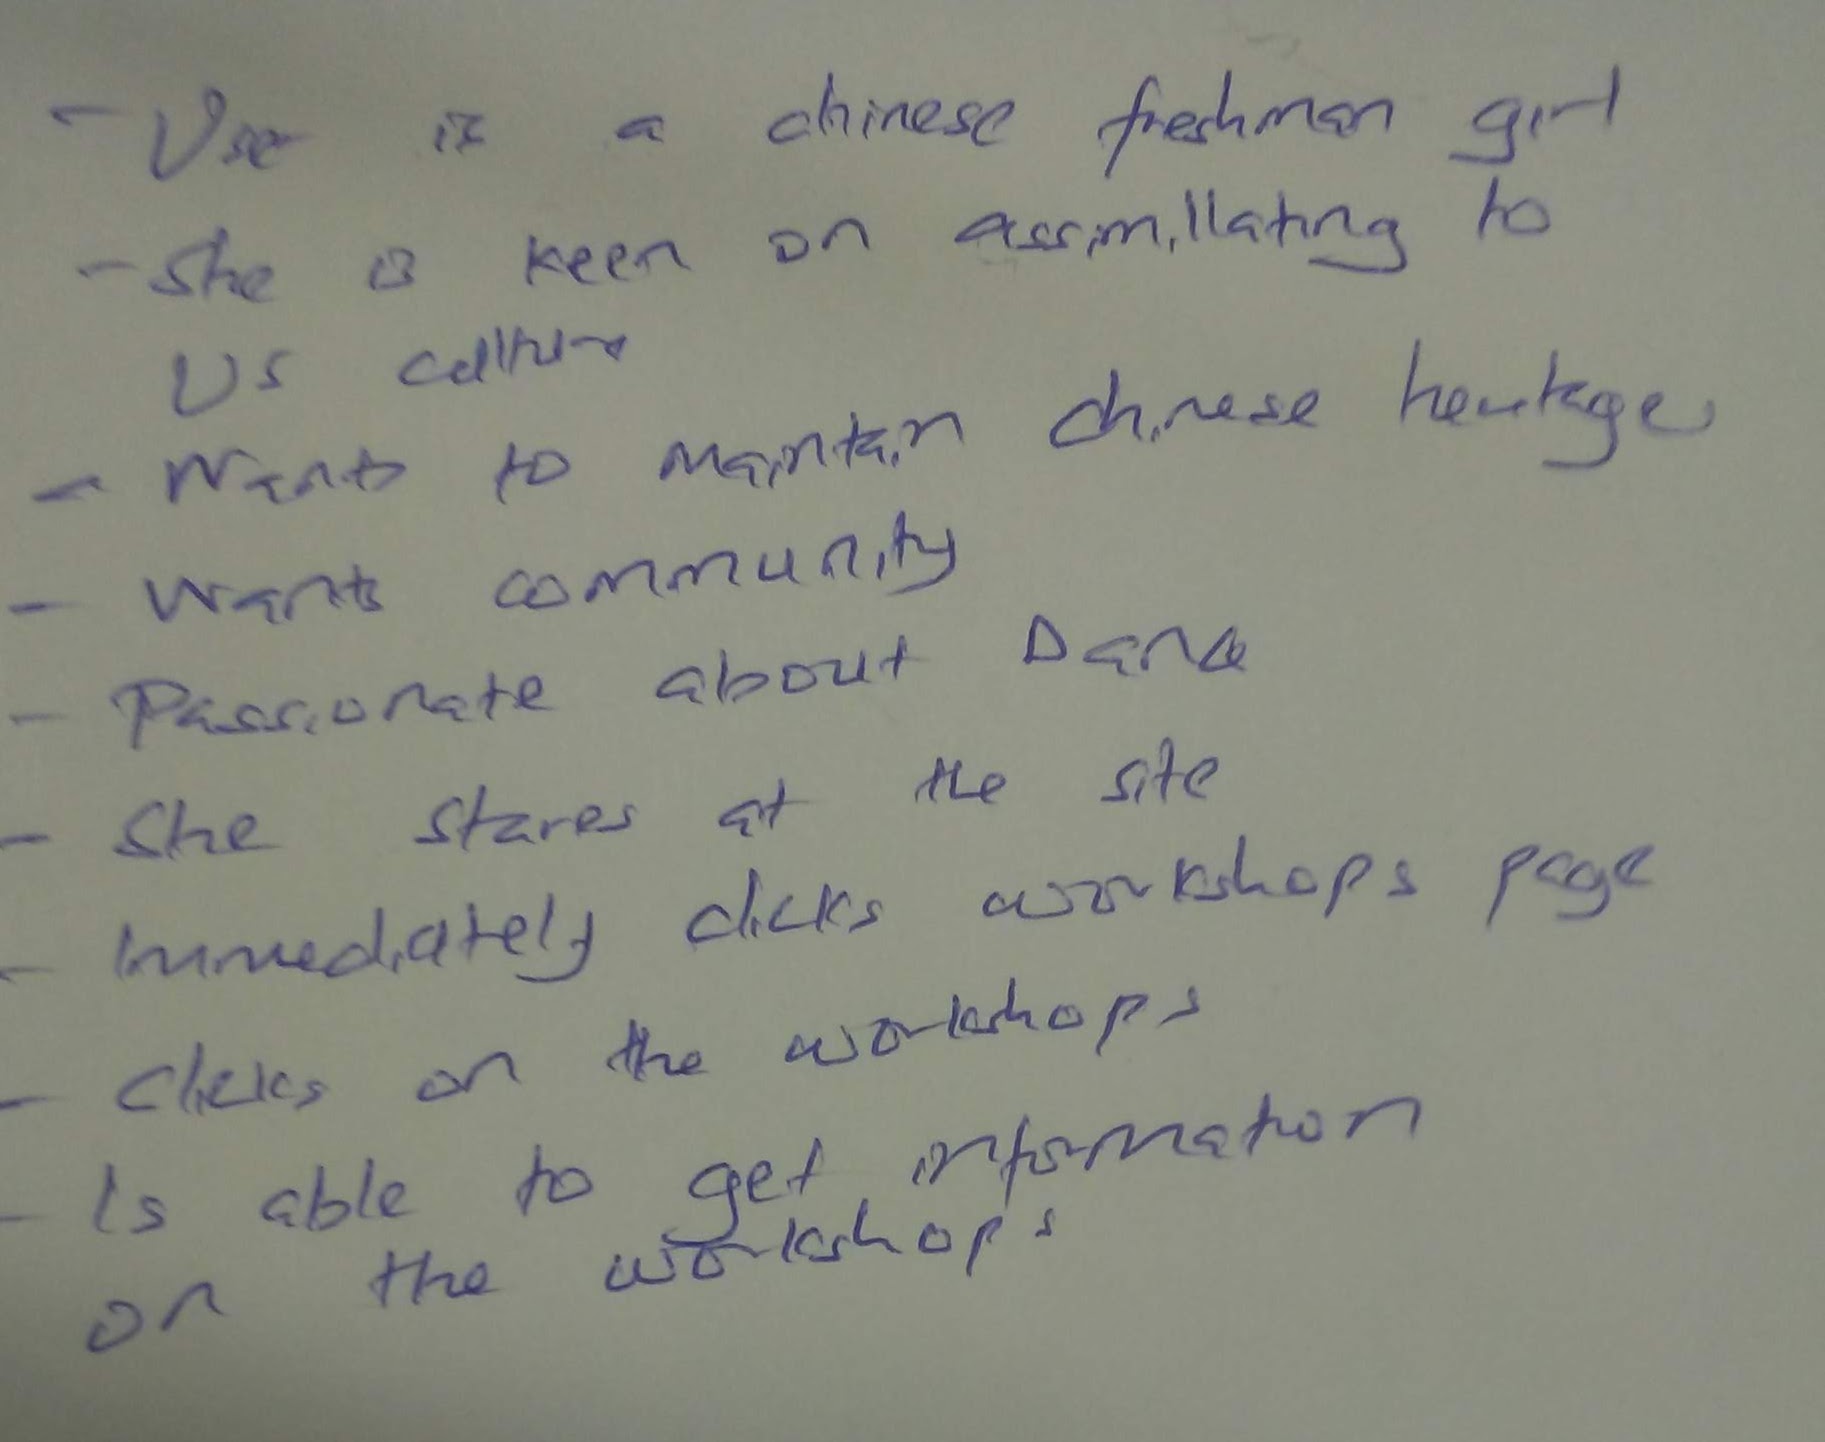 - User is a chinese freshman girl
- She is keen on assimillating to
US culture
- Wants to maintain chinese heritage
- Wants community
- Passionate about Dance
- She stares at the site
- Immediately clicks workshops page
- Clicks on the workshops
- Is able to get information
on the workshops